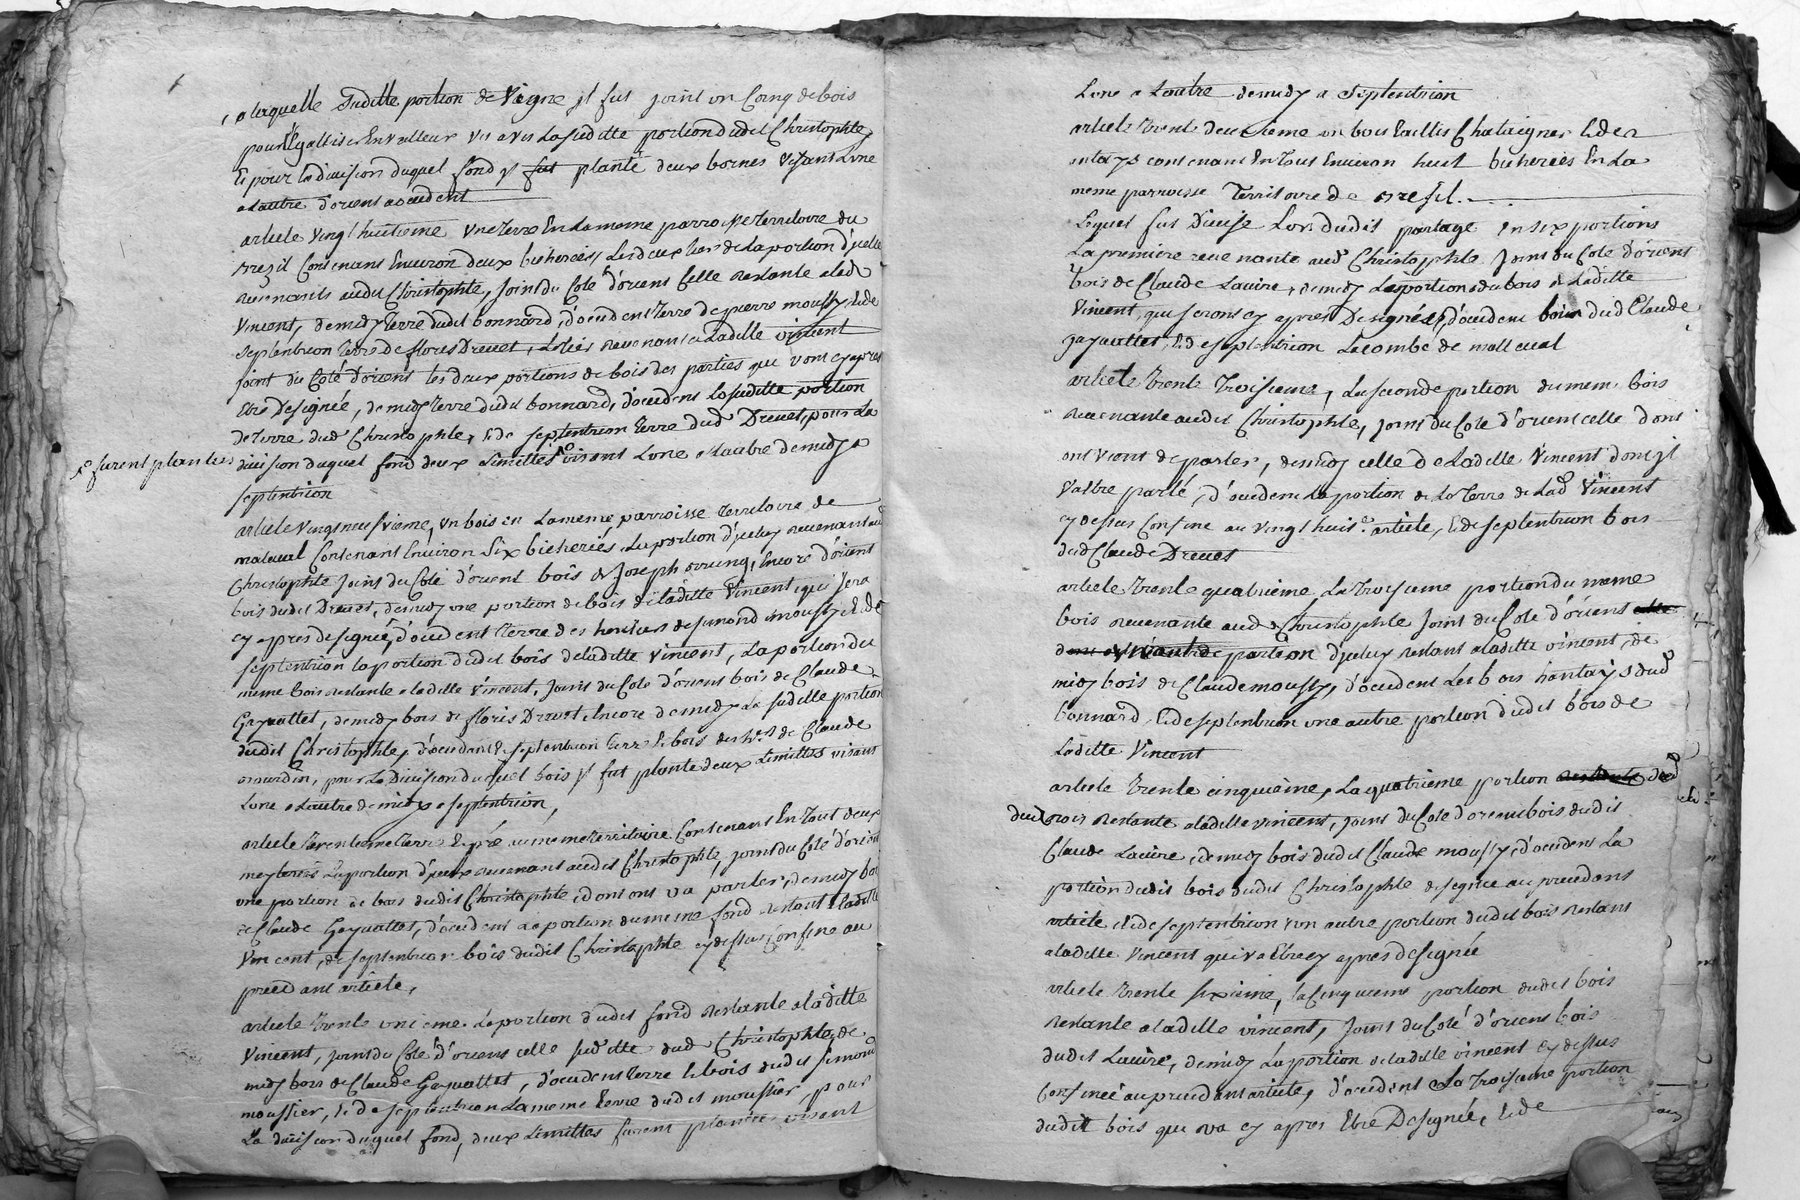 a laquelle Suditte portion de Vigne il fut joint un Coing de bois
pour Egalliser En valleur vis a vis La suditte portion dudit Christophle,
Et pour La division duquel fond y fut planté deux bornes visant L'une
a Lautre d'orient a occident
article vingt huitieme une terre En La meme parroisse territoire du
trezil Contenant Environ deux bicherées, Les deux tiers de La portion d'jcelle
Revenants audit Christophle, Joint du Coté d'orient Celle Restante a lad
Vincent, de midy terre dudit bonnard, d'occident terre de pierre moussy, & de
Septentrion terre de floris Drevet, L'autre Revenant a Laditte vincent
joint du Coté d'orient les deux portions de bois des parties qui vont cy apres
Etre Designée, de midy terre dudit bonnard, d'occident La suditte portion
de terre dud Christophle, & de septentrion terre dud Drevet, pour La
furent plantées
division duquel fond deux Limittes visant L'une a Lautre de midy a
septentrion
article vingt neufvieme, un bois en La meme parroisse territoire de
malaval Contenant Environ Six bicherées, La portion d'jceluy Revenant aud
Christophle Joint du Coté d'orient bois de Joseph orrung, Encore d'orient
bois dudit Drevet, de midy une portion de bois de laditte Vincent, qui sera
cy apres designée, d'occident terre des heritiers de simond moussy, & de
septentrion la portion dudit bois de laditte Vincent, La portion du
meme bois restante a laditte Vincent, Joint du Coté d'orient bois de Claude
Gayvallet, de midy bois de floris Drevet Encore de midy La suditte portion
dudit Christophle, d'occident & septentrion terre & bois des hers de Claude
mourdin, pour La Division duquel bois y fut planté deux Limittes visant
L'une a Lautre de midy a septentrion,
article trentieme terre & pré au meme territoire Contenant En tout deux
meyterées La portion d'jceux revenant audit Christophle, joint du Coté d'orient
une portion de bois dudit Christophle, dont on va parler, de midy bois
de Claude Gayvallet, d'occident La portion du meme fond restant a laditte
Vincent, de septentrion bois dudit Christophle cy dessus Confiné au
precedant article,
article trente unieme La portion dudit fond restante a laditte
Vincent, joint du Coté d'orient celle suditte dud Christophle, de
midy bois de Claude Gayvallet, d'occident terre & bois dudit simond
moussier, & de septentrion La meme terre dudit moussier, pour
La division duquel fond, deux Limittes furent plantées visant
L'une a Lautre de midy a septentrion
article trente deuxieme un bois taillis Chataignier & de
hantays contenant En tout Environ huit bicherées En La
meme parroisse territoire de tresil.
Lequel fut Divisé Lors dudit partage en six portions
La premiere revenante aud Christophle Joint du Coté d'orient
bois de Claude Laure, de midy Les portions du bois de Laditte
Vincent, qui seront cy apres Designées, d'occident bois dud Claude
gayvallet, & de septentrion La combe de mallaval
article trente troisieme, La seconde portion du meme bois
revenante audit Christophle, joint du Coté d'orient celle dont
ont vient de parler, de midy celle de Laditte Vincent dont jl
va Etre parlé, d'occident La portion de La terre de Lad Vincent
cy dessus Confiné au vingt huite article, & de septentrion bois
dud Claude Drevet
article trente quatrieme, La troisieme portion du meme
bois revenante aud Christophle Joint du Coté d'orient
portion d'jceluy restant a laditte vincent, de
midy bois de Claude moussy, d'occident Les bois hantays dud
bonnard, & de septentrion une autre portion dudit bois de
Laditte Vincent
article trente cinquieme, La quatrieme portion dud
dud bois Restante a laditte vincent, joint du Coté d'orient bois dudit
Claude Laure, de midy bois dudit Claude moussy, d'occident La
portion dudit bois dudit Christophle designée au precedant
article & de septentrion un autre portion dudit bois restant
a laditte Vincent qui va Etre cy apres designée
article trente sixieme, La Cinquieme portion dudit bois
Restante a laditte vincent, Joint du Coté d'orient bois
dudit Laure, de midy La portion de laditte vincent cy dessus
Confinée au precedant article, d'occident La troisieme portion
dudit bois qui va cy apres Etre Designée, & de